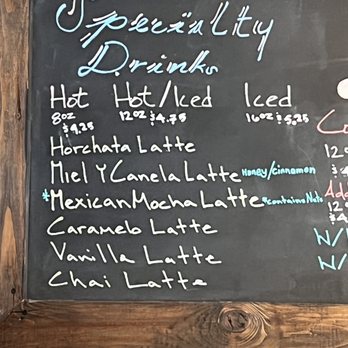 Speciality
Drinks
Hot Hot/Iced Iced
8oz 12oz $4.75 16oz $5.25
$4.25
Horchata Latte
Miel Y Canela Latte Honey/cinnamon
*Mexican Mocha Latte *contains Nuts
Caramelo Latte
Vanilla Latte
Chai Latte
12o
Add
12o
W/
W/